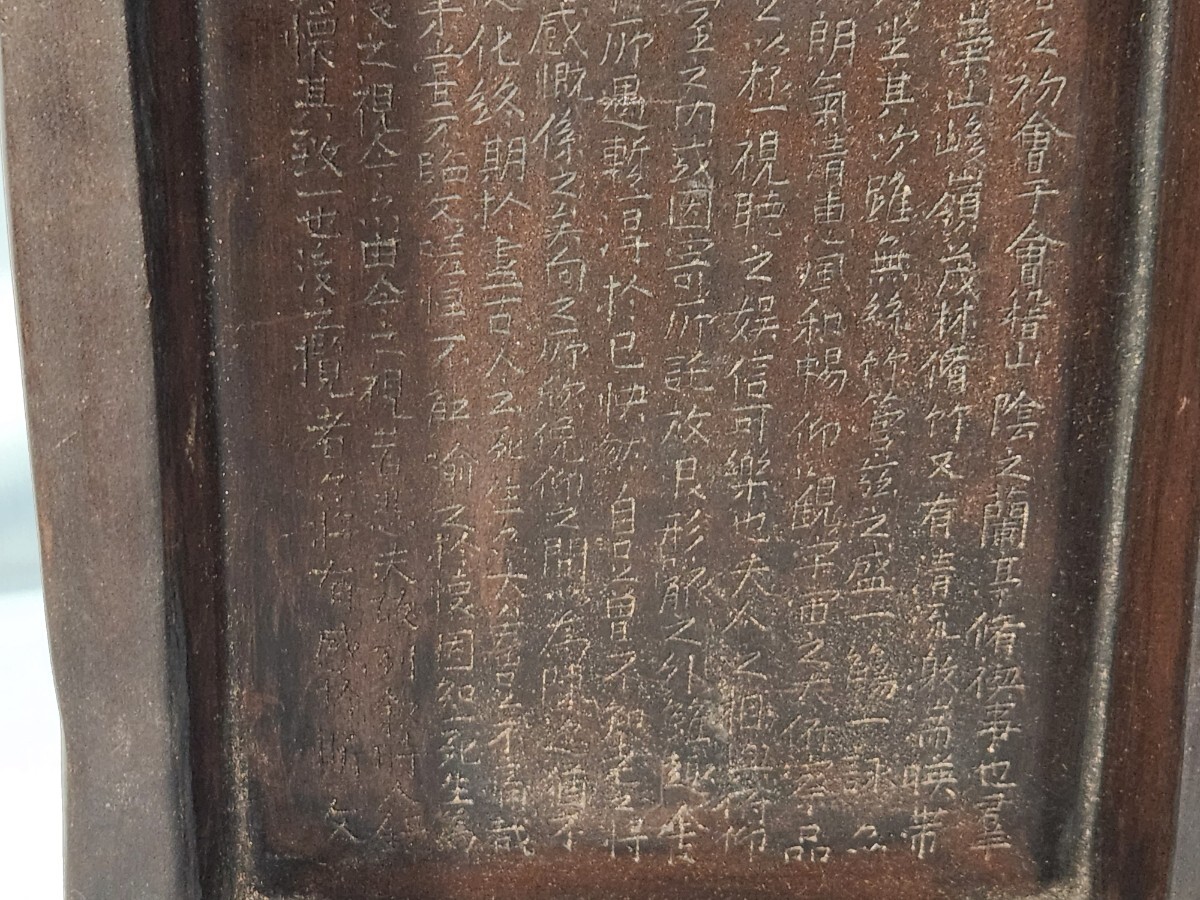 之初會于會稽山陰之蘭亭脩禊事也羣
崇山峻嶺茂林脩竹又有清流激湍暎帶
坐其次雖無絲竹管弦之盛一觴一詠亦
朗氣清惠風和暢仰觀宇宙之大俯察品
之以極視聽之娛信可樂也夫人之相與俯仰
室之內或因寄所託放浪形骸之外雖趣舍
所遇暫得於己快然自足曾不知老之將
感慨係之矣向之所欣俛仰之間以為陳迹猶不
化終期於盡古人云死生亦大矣豈不痛哉
未嘗不臨文嗟悼不能喻之於懷固知一死生為
之視今亦由今之視昔悲夫故列敘時人錄
懷其致一也後之攬者亦將有感於斯文